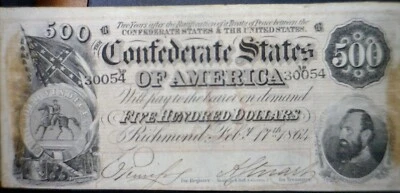 Two Years after the Ratification of a Treaty of Peace between the
CONFEDERATE STATES & THE UNITED STATES.
500 THE Confederate States 500
30054 OF AMERICA 30054
Will pay to the bearer on demand
FIVE HUNDRED DOLLARS
Richmond Feby. 17th 1864
for Register for Treasurer